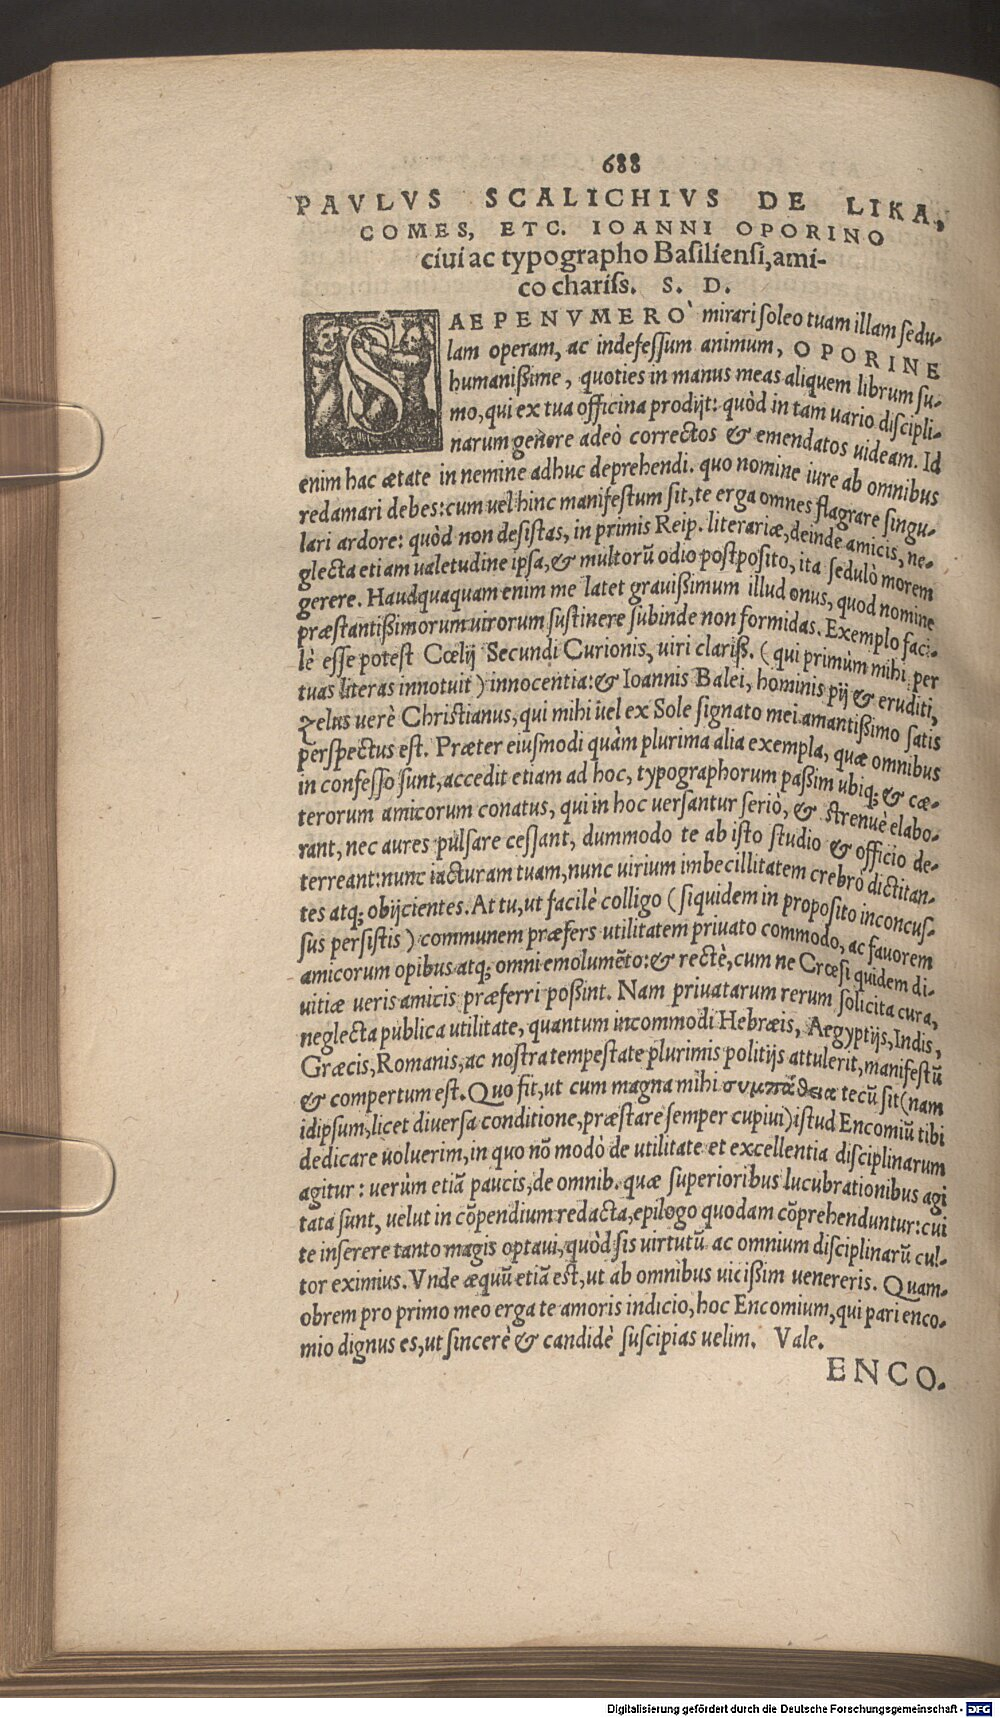 688
PAVLVS SCALICHIVS DE LIKA,
COMES, ETC. IOANNI OPORINO
ciui ac typographo Basiliensi, ami-
co chariss. S. D.
SAEPENVMERO` mirari soleo tuam illam sedu-
lam operam, ac indefessum animum, OPORINE
humanißime, quoties in manus meas aliquem librum su-
mo, qui ex tua officina prodijt: quòd in tam uario discipli-
narum genere adeò correctos & emendatos uideam. Id
enim hac ætate in nemine adhuc deprehendi. quo nomine iure ab omnibus
redamari debes: cum uel hinc manifestum sit, te erga omnes flagrare singu-
lari ardore: quòd non desistas, in primis Reip. literariæ, deinde amicis, ne-
glecta etiam ualetudine ipsa, & multorũ odio postposito, ita sedulò morem
gerere. Haudquaquam enim me latet grauißimum illud onus, quod nomine
præstantißimorum uirorum sustinere subinde non formidas. Exemplo faci-
lè esse potest Cœlij Secundi Curionis, uiri clariß. (qui primùm mihi per
tuas literas innotuit) innocentia: & Ioannis Balei, hominis pij & eruditi,
zelus uerè Christianus, qui mihi uel ex Sole signato mei amantißimo satis
perspectus est. Præter eiusmodi quàm plurima alia exempla, quæ omnibus
in confesso sunt, accedit etiam ad hoc, typographorum paßim ubiq; & cæ-
terorum amicorum conatus, qui in hoc uersantur seriò, & strenuè elabo-
rant, nec aures pulsare cessant, dummodo te ab isto studio & officio de-
terreant: nunc iacturam tuam, nunc uirium imbecillitatem crebrò dictitan-
tes atq; obijcientes. At tu, ut facilè colligo (siquidem in proposito inconcus-
sus persistis) communem præfers utilitatem priuato commodo, ac fauorem
amicorum opibus atq; omni emolumẽto: & rectè, cum ne Crœsi quidem di-
uitiæ ueris amicis præferri poßint. Nam priuatarum rerum solicita cura,
neglecta publica utilitate, quantum incommodi Hebræis, Aegyptijs, Indis,
Græcis, Romanis, ac nostra tempestate plurimis politijs attulerit, manifestũ
& compertum est. Quo fit, ut cum magna mihi συμπάθεια tecũ sit (nam
idipsum, licet diuersa conditione, præstare semper cupiui) istud Encomiũ tibi
dedicare uoluerim, in quo nõ modò de utilitate et excellentia disciplinarum
agitur: uerùm etiã paucis, de omnib. quæ superioribus lucubrationibus agi
tata sunt, uelut in cõpendium redacta, epilogo quodam cõprehenduntur: cui
te inserere tanto magis optaui, quòd sis uirtutũ ac omnium disciplinarũ cul-
tor eximius. Vnde æquũ etiã est, ut ab omnibus uicißim uenereris. Quam-
obrem pro primo meo erga te amoris indicio, hoc Encomium, qui pari enco-
mio dignus es, ut sincerè & candidè suscipias uelim. Vale.
ENCO-
Digitalisierung gefördert durch die Deutsche Forschungsgemeinschaft - DFG